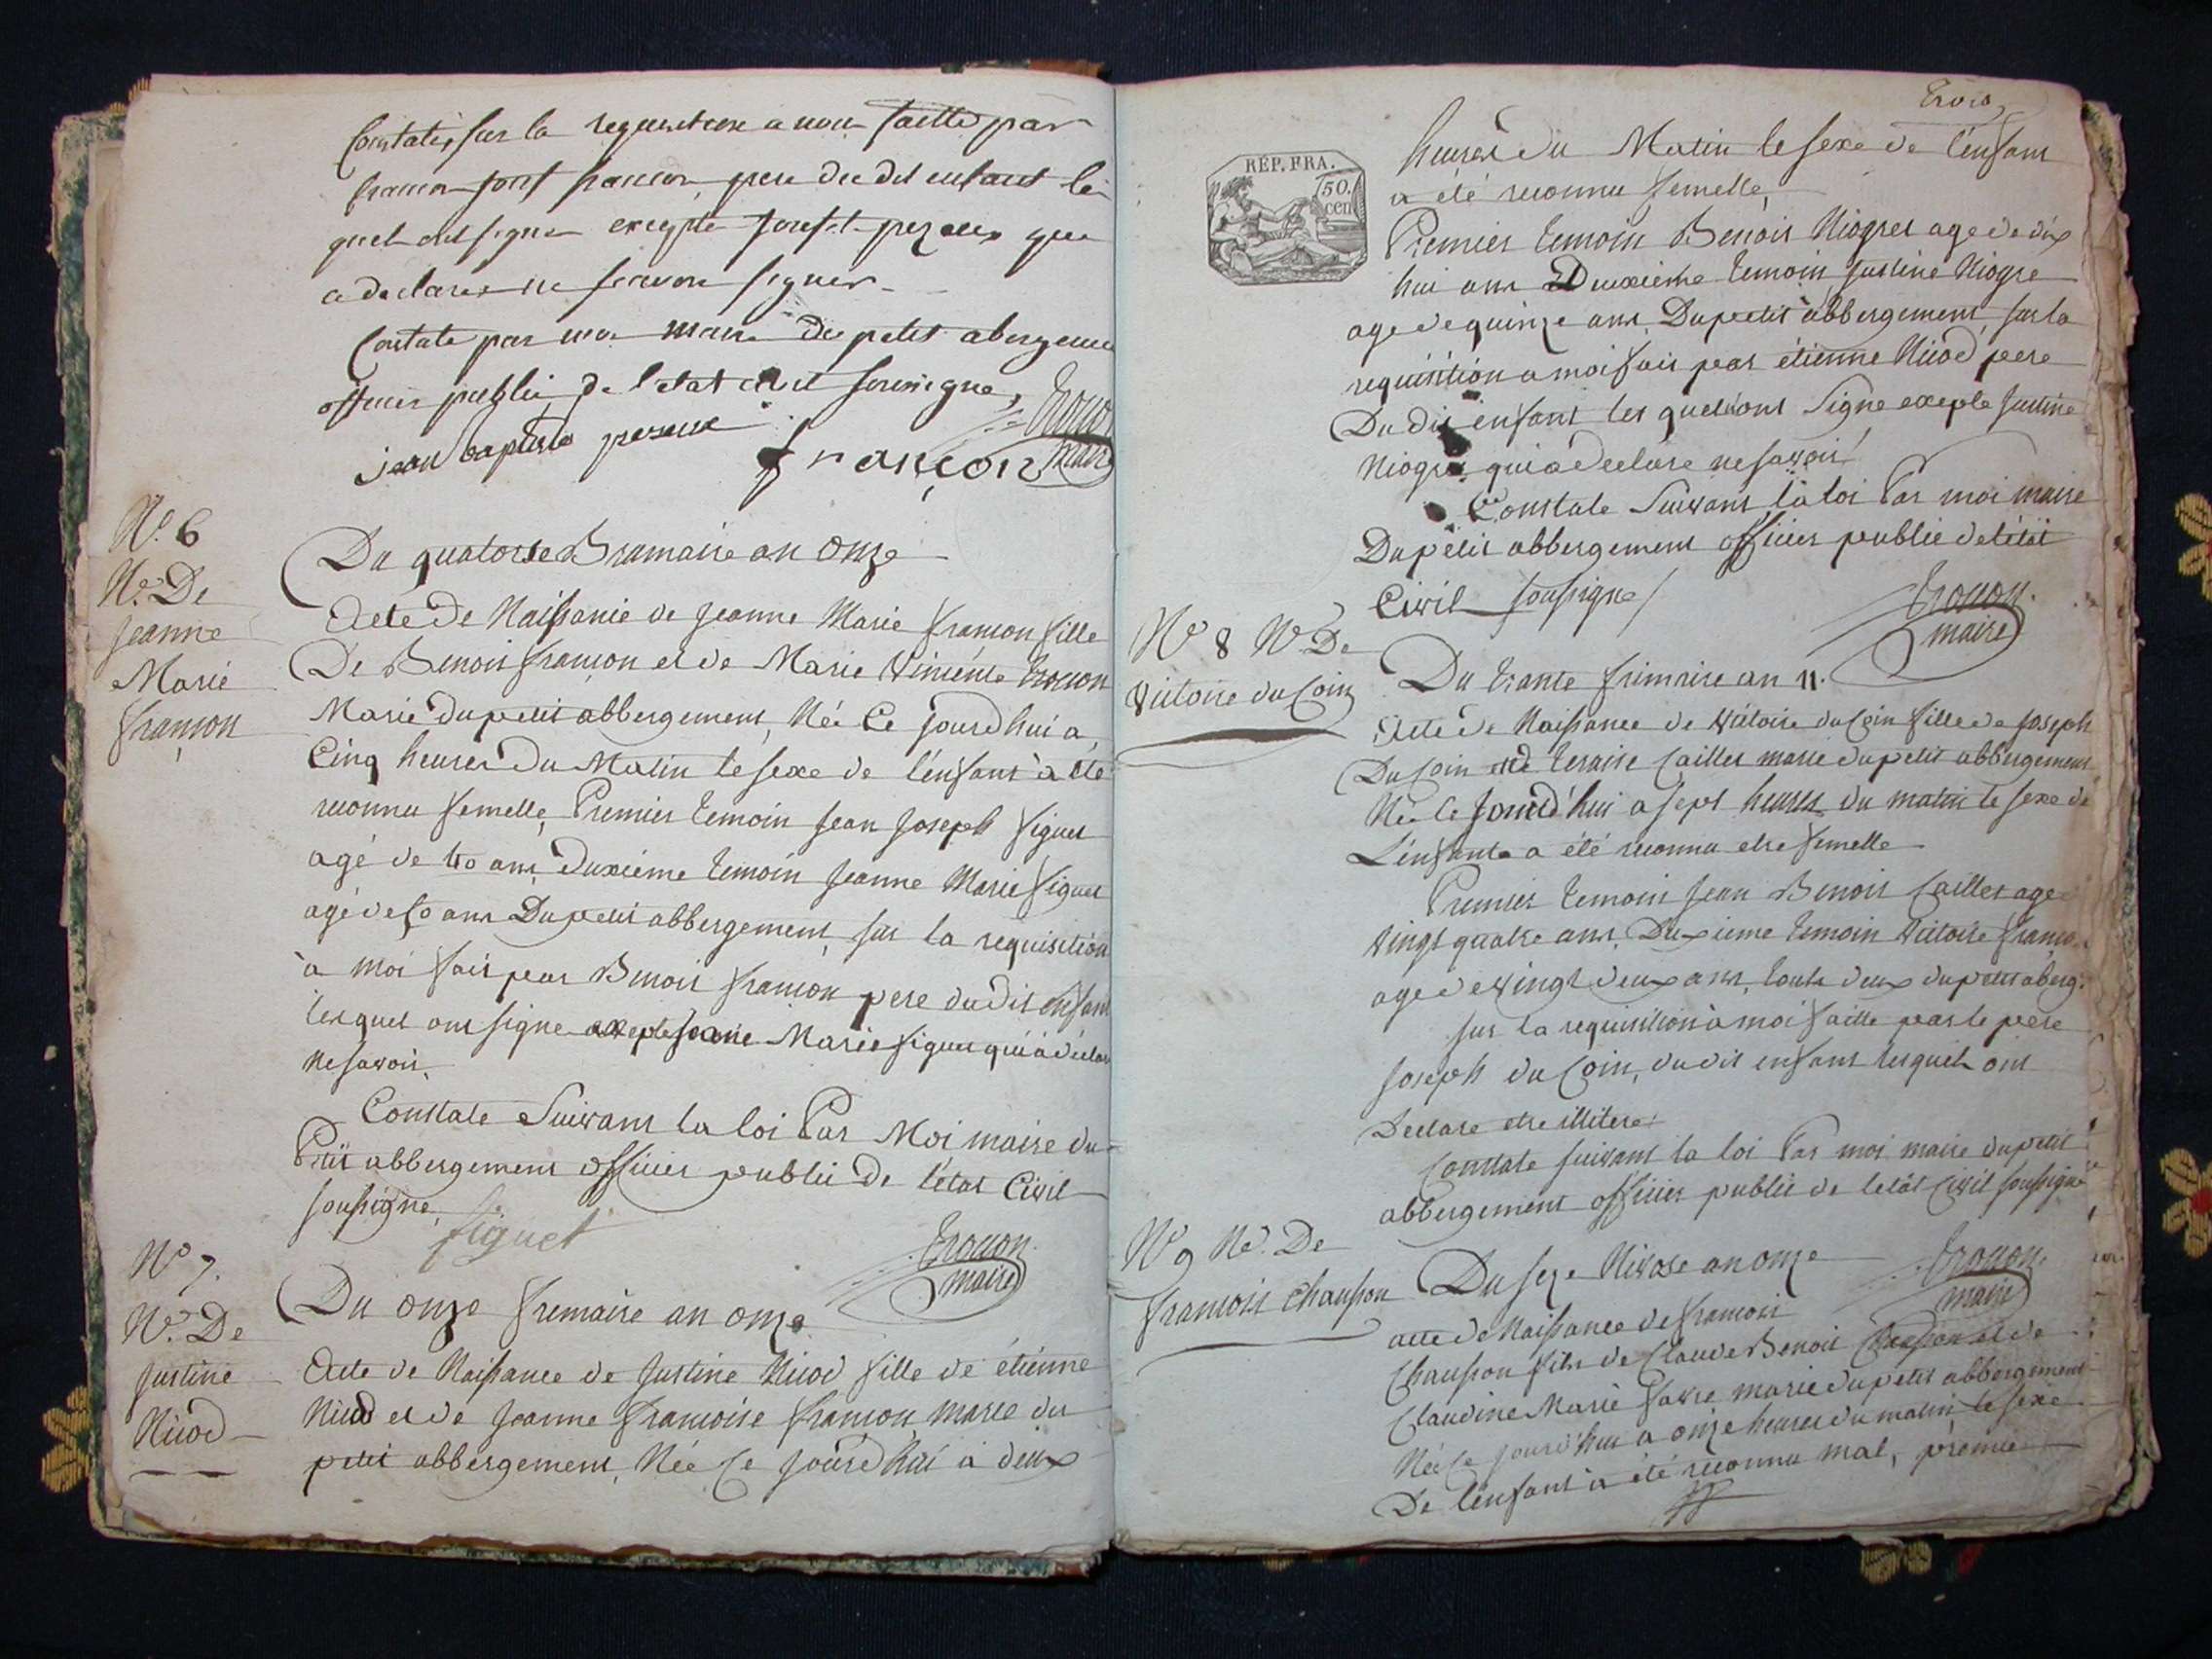 Constatés, sur la requisition a nous faitte par
francon père du dit enfant les
quel ont signé excepté
a declarer ne scavoir signer
Constate par moi maire du petit abergeme
officier public de l'etat civil soussigne,
jean baptiste
françon
Trocon
maire
N.º 6
N.ce De
Jeanne
Marie
françon
Du quatorse Brumaire an onze
Acte de Naissance de Jeanne Marie françon fille
De Benois françon et de Marie Vincente Trocon
Marié du petit abbergement, Née Ce jourd'hui a
Cinq heures Du Matin le sexe de l'enfant à été
reconnu femelle, Premier temoin Jean Joseph figuet
agé de ans, Duxiéme temoin Jeanne Marie figuet
agé de ans Du petit abbergement, sur la requisition
à moi fait par Benois françon pere du dit enfant
lesquel ont signe Marie figuet qui à déclar
ne savoir,
Constate Suivant la loi Par Moi maire du
Petit abbergement officier public De l'état Civil
soussigne,
figuet
Trocon
maire
N.º 7.
N.ce De
Justine
Nicod
Du onze frimaire an onze
Acte de Naissance de Justine Nicod fille de étienne
Nicod et de Jeanne françoise françon, marié du
petit abbergement, Née Ce jourd'hui à deux
Trois
RÉP. FRA.
50.
cen
heures du Matin le sexe de l'enfant
a été reconnu femelle,
Premier temoin Benois Niogret age de dix
hui ans Deuxieme temoin Justine Niogre
age de quinze ans, Du petit abbergement, sur la
requisition a moi fais par étienne Nicod pere
Du dit enfant les quels ont Signe exepte Justine
Niogre qui a declare ne savoir
Constate Suivant la loi Par moi maire
Du petit abbergement officier public de l'état
Civil soussigne
Trocon
maire
N.º 8 N.ce De
Victoire du Coin
Du trante frimaire an 11.
Acte de Naissance de Victoire du Coin fille de Joseph
Du Coin et de teraise Caillet marié du petit abbergement
Née le Jourd'hui a sept heures du matin le sexe de
L'enfante a été reconnu etre femelle
Premier temoin Jean Benois Caillet age
vingt quatre ans, Deuxieme temoin Victoire franco
age de vingt deux ans, touts deux du petit aberg.
sur la requisition à moi faitte par le pere
Joseph du Coin, du dit enfant lesquels ont
Declare etre illitere
Constate suivant la loi Par moi maire du petit
abbergement officier public de l'etât Civil soussigné
Trocon
maire
N.º 9 N.ce De
françois Chausson
Du seze Nivose an onze
acte de Naissance de françois
Chausson fils de Claude Benois Chausson et de
Claudine Marie favre, marié du petit abbergement
Née Ce jourd'hui a onze heures du matin le sexe
De l'enfant à été reconnu mal, premie